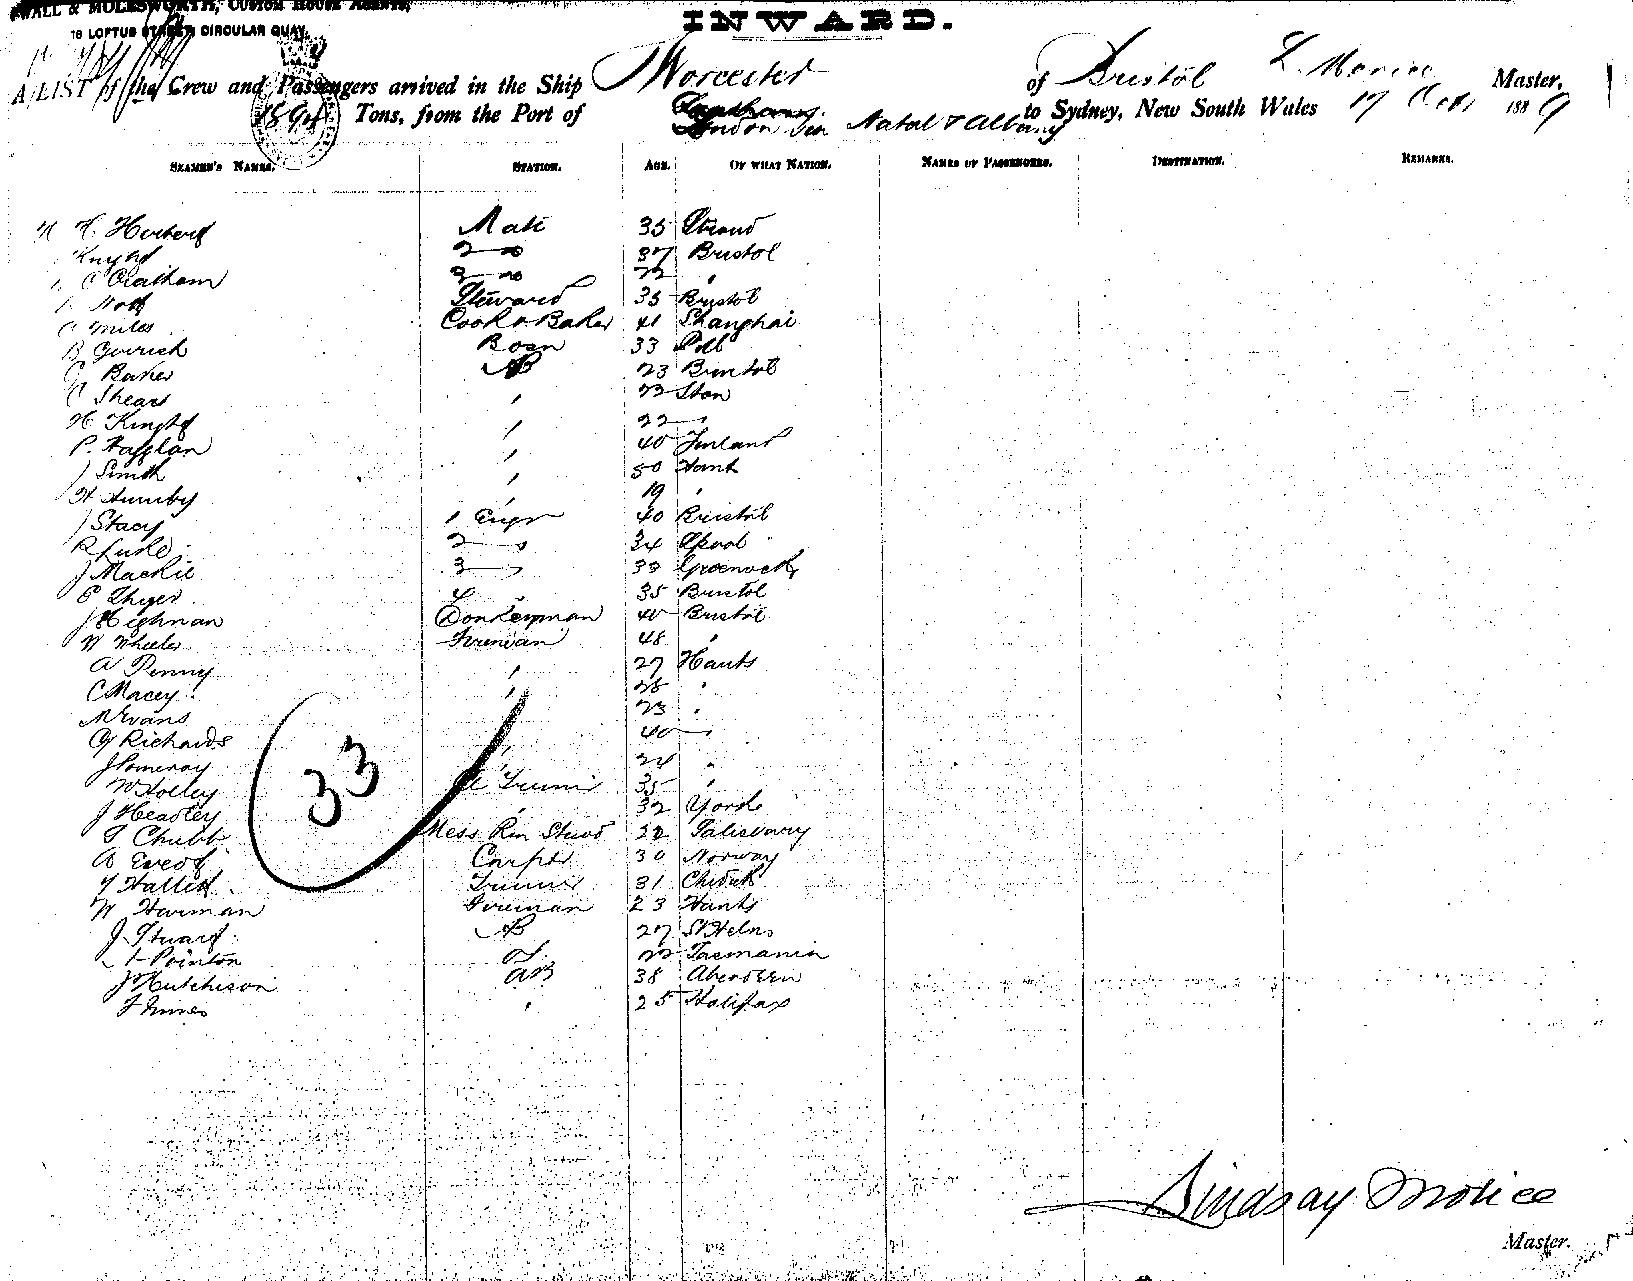 WALL & MOLESWORTH, CUSTOM HOUSE AGENTS,
16 LOFTUS STREET, CIRCULAR QUAY.
INWARD.
A LIST of the Crew and Passengers arrived in the Ship Worcester of Bristol L. Master,
Tons, from the Port of London via Natal & Albany to Sydney, New South Wales 17 Oct 1889
SEAMEN'S NAMES. STATION. AGE. OF WHAT NATION. NAMES OF PASSENGERS. DESTINATION. REMARKS.
H. Herbert Mate 35 Stroud
Knight 2 37 Bristol
C Cratham 3 22 "
Nott Steward 35 Bristol
C Miles Cook & Baker 41 Shanghai
B Gerrich Bosn 33 Pill
C Baker AB 23 Bristol
C Shears " 23
H. Knight " 22 "
P. " 40 Finland
J Smith " 50 Hants
H " 19 "
J Stacy 1 Engr 40 Bristol
R Luke 2 " 34 Lpool
J Mackie 3 " 33 Greenock
E 4 35 Bristol
J Highman Donkeyman 40 Bristol
W Wheeler Fireman 48 "
A Penny " 27 Hants
C Macey " 28 "
M Evans 23 "
G Richards " 40 "
J Pomeroy " 24 "
W Holley 35 "
J Headley " 32 York
Chubb Mess Rm Stewd 32 Salisbury
A Carptr 30 Norway
Hallett Trimmer 31
W Harman Fireman 23 Hants
J. Stuart AB 27 St Helns
Pointon OS 22 Tasmania
J Hutchison AB 38 Aberdeen
" 25 Halifax
33
Lindsay
Master.